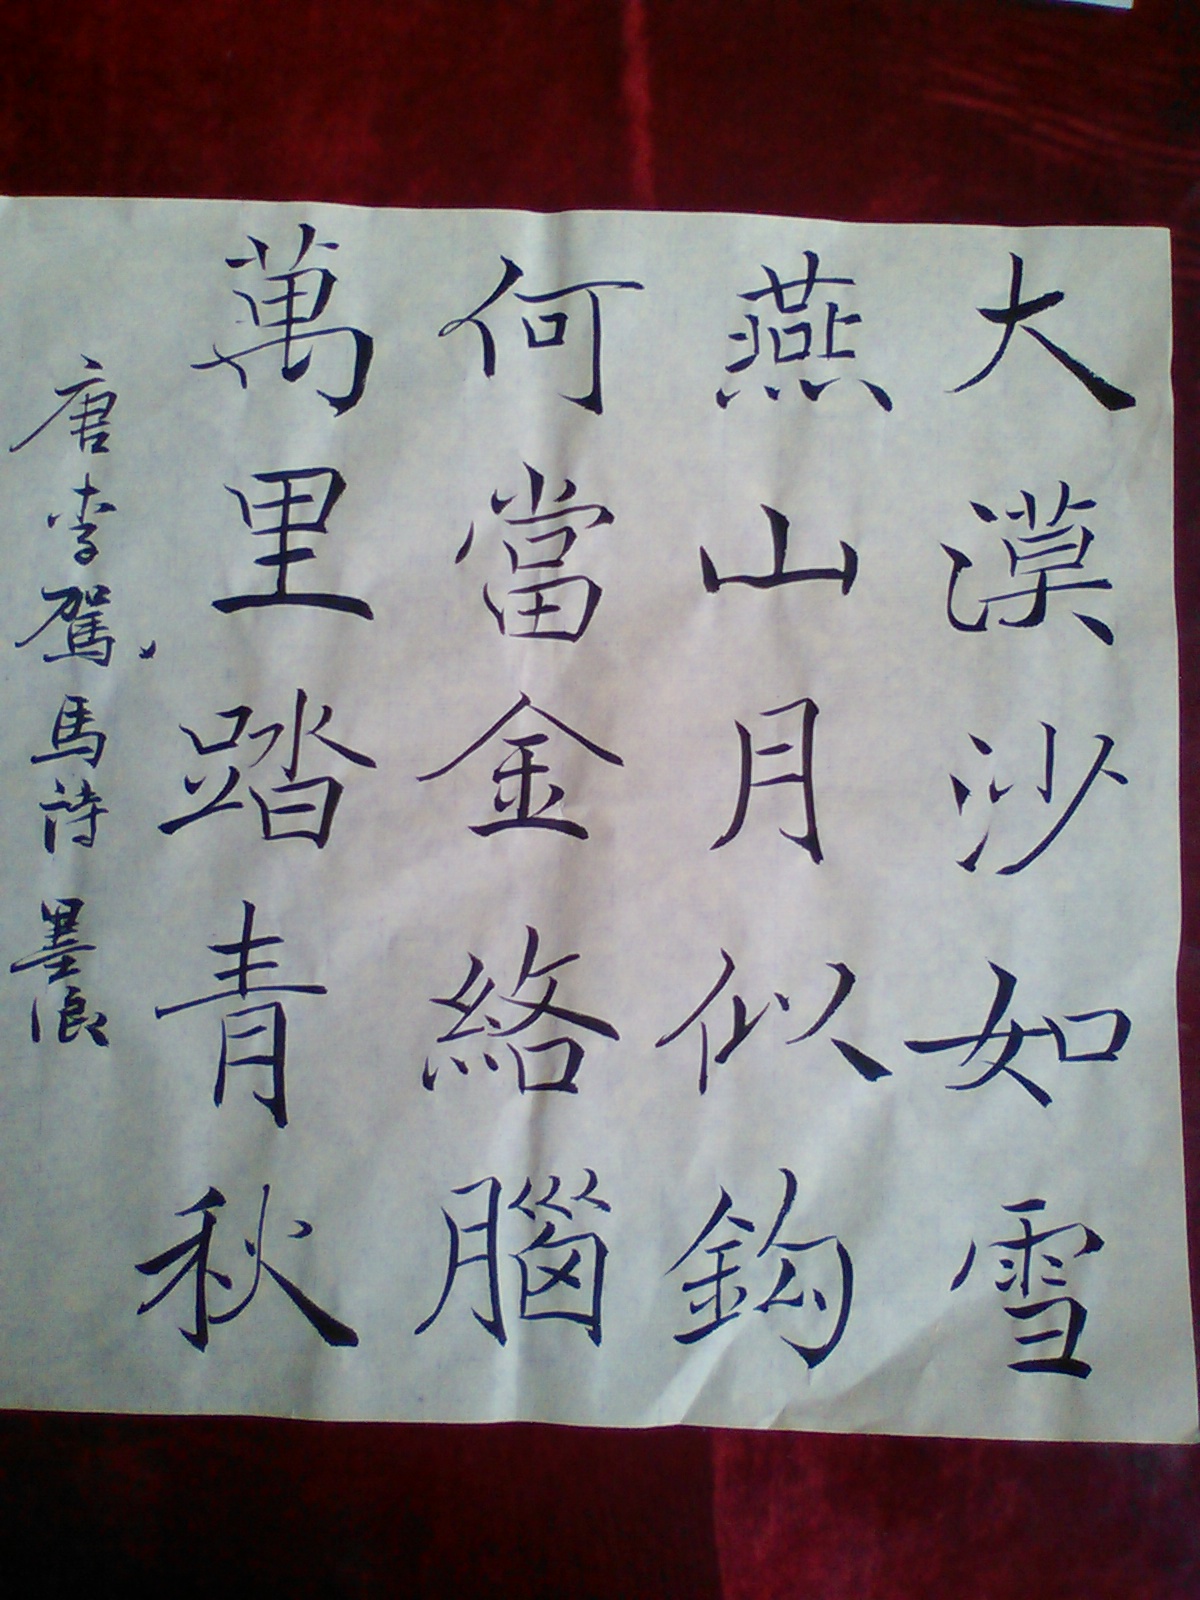 大漠沙如雪
燕山月似鈎
何當金絡腦
萬里踏青秋
唐李駕馬詩墨浪